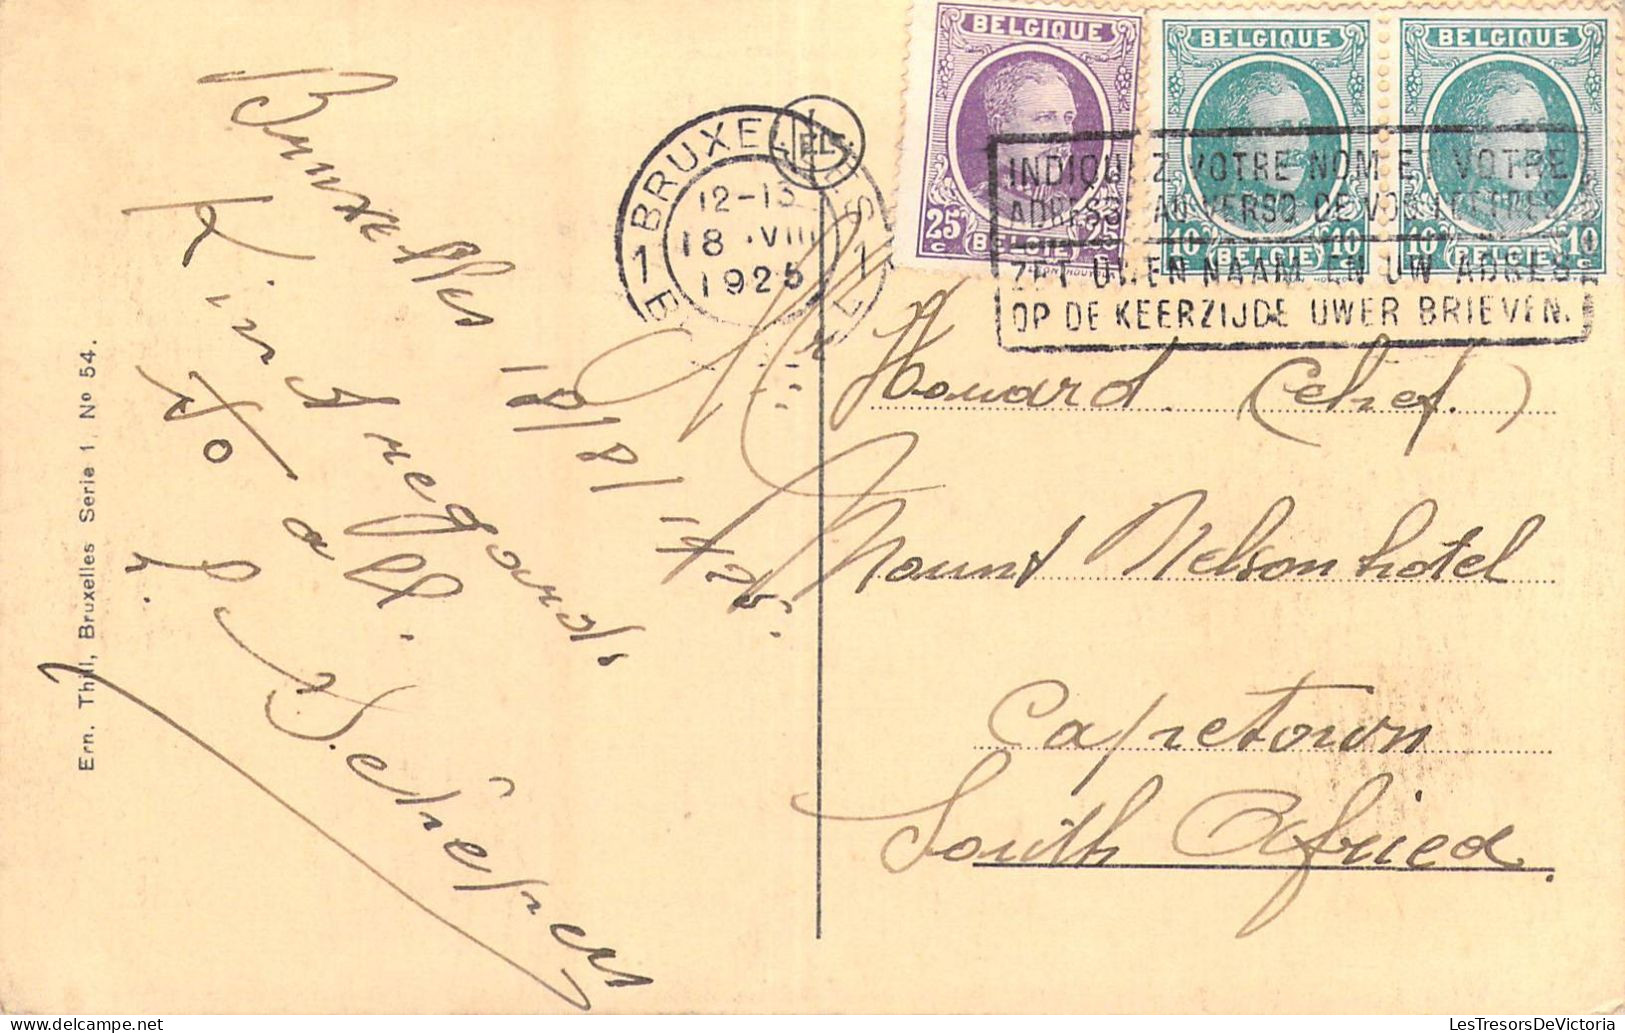 BELGIQUE
25c 25c
BELGIË
BELGIQUE
10c 10c
(BELGIË)
BELGIQUE
10c 10c
(BELGIË)
BRUXELLES
12-13
18 VIII
1925
1 1
INDIQUEZ VOTRE NOM ET VOTRE
ADRESSE AU VERSO DE VOS LETTRES
ZET UWEN NAAM EN UW ADRES
OP DE KEERZIJDE UWER BRIEVEN.
Bruxelles 18/8/1925.
Kind regards
to all.
Ern. Thill, Bruxelles Serie 1. No 54.
Mr Howard (chef)
Mount Nelson hotel
Capetown
South Africa.
LesTresorsDeVictoria.com